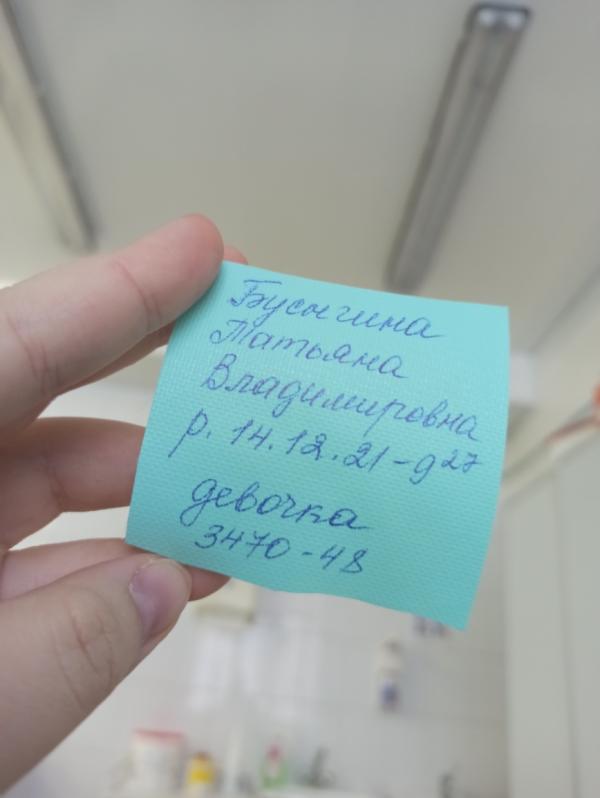 Бусыгина
Татьяна
Владимировна
р. 14.12.21-9²⁷
девочка
3470-48